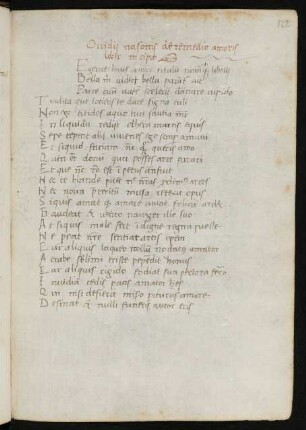 Ovidij nasonis de remedio amoris
liber incipit
Legerat huius amor titulum nomenq libelli
Bella mihi video bella parant ait
Parce tuum vatem sceleris damnare cupido
Tradita qui toties te duce signa tuli
Non ego titides a quo tua saucia mater
In liquidum rediit ethera martis equis
Sepe tepent alii iuvenes ego semper amavi
Et si quid faciam nunc quoque queris amo
Quin etiam docui qua posses arte parari
Et quod nunc ratio est impetus ante fuit
Nec te blande puer nec nostras prodimus artes
Nec nova preteritum musa retexit opus
Siquis amat quod amare iuvat feliciter ardet
Gaudeat et vento naviget ille suo
At siquis male fert indigne regna puelle
Ne pereat nostre sentiat artis opem
Cur aliquis laqueo collum nodatus amator
A trabe sublimi triste pependit honus
Cur aliquis rigido fodiat sua pectora ferro
Invidiam cedis pacis amator habes
Qui nisi desierit misero periturus amore
Desinat et nulli funeris auctor eris